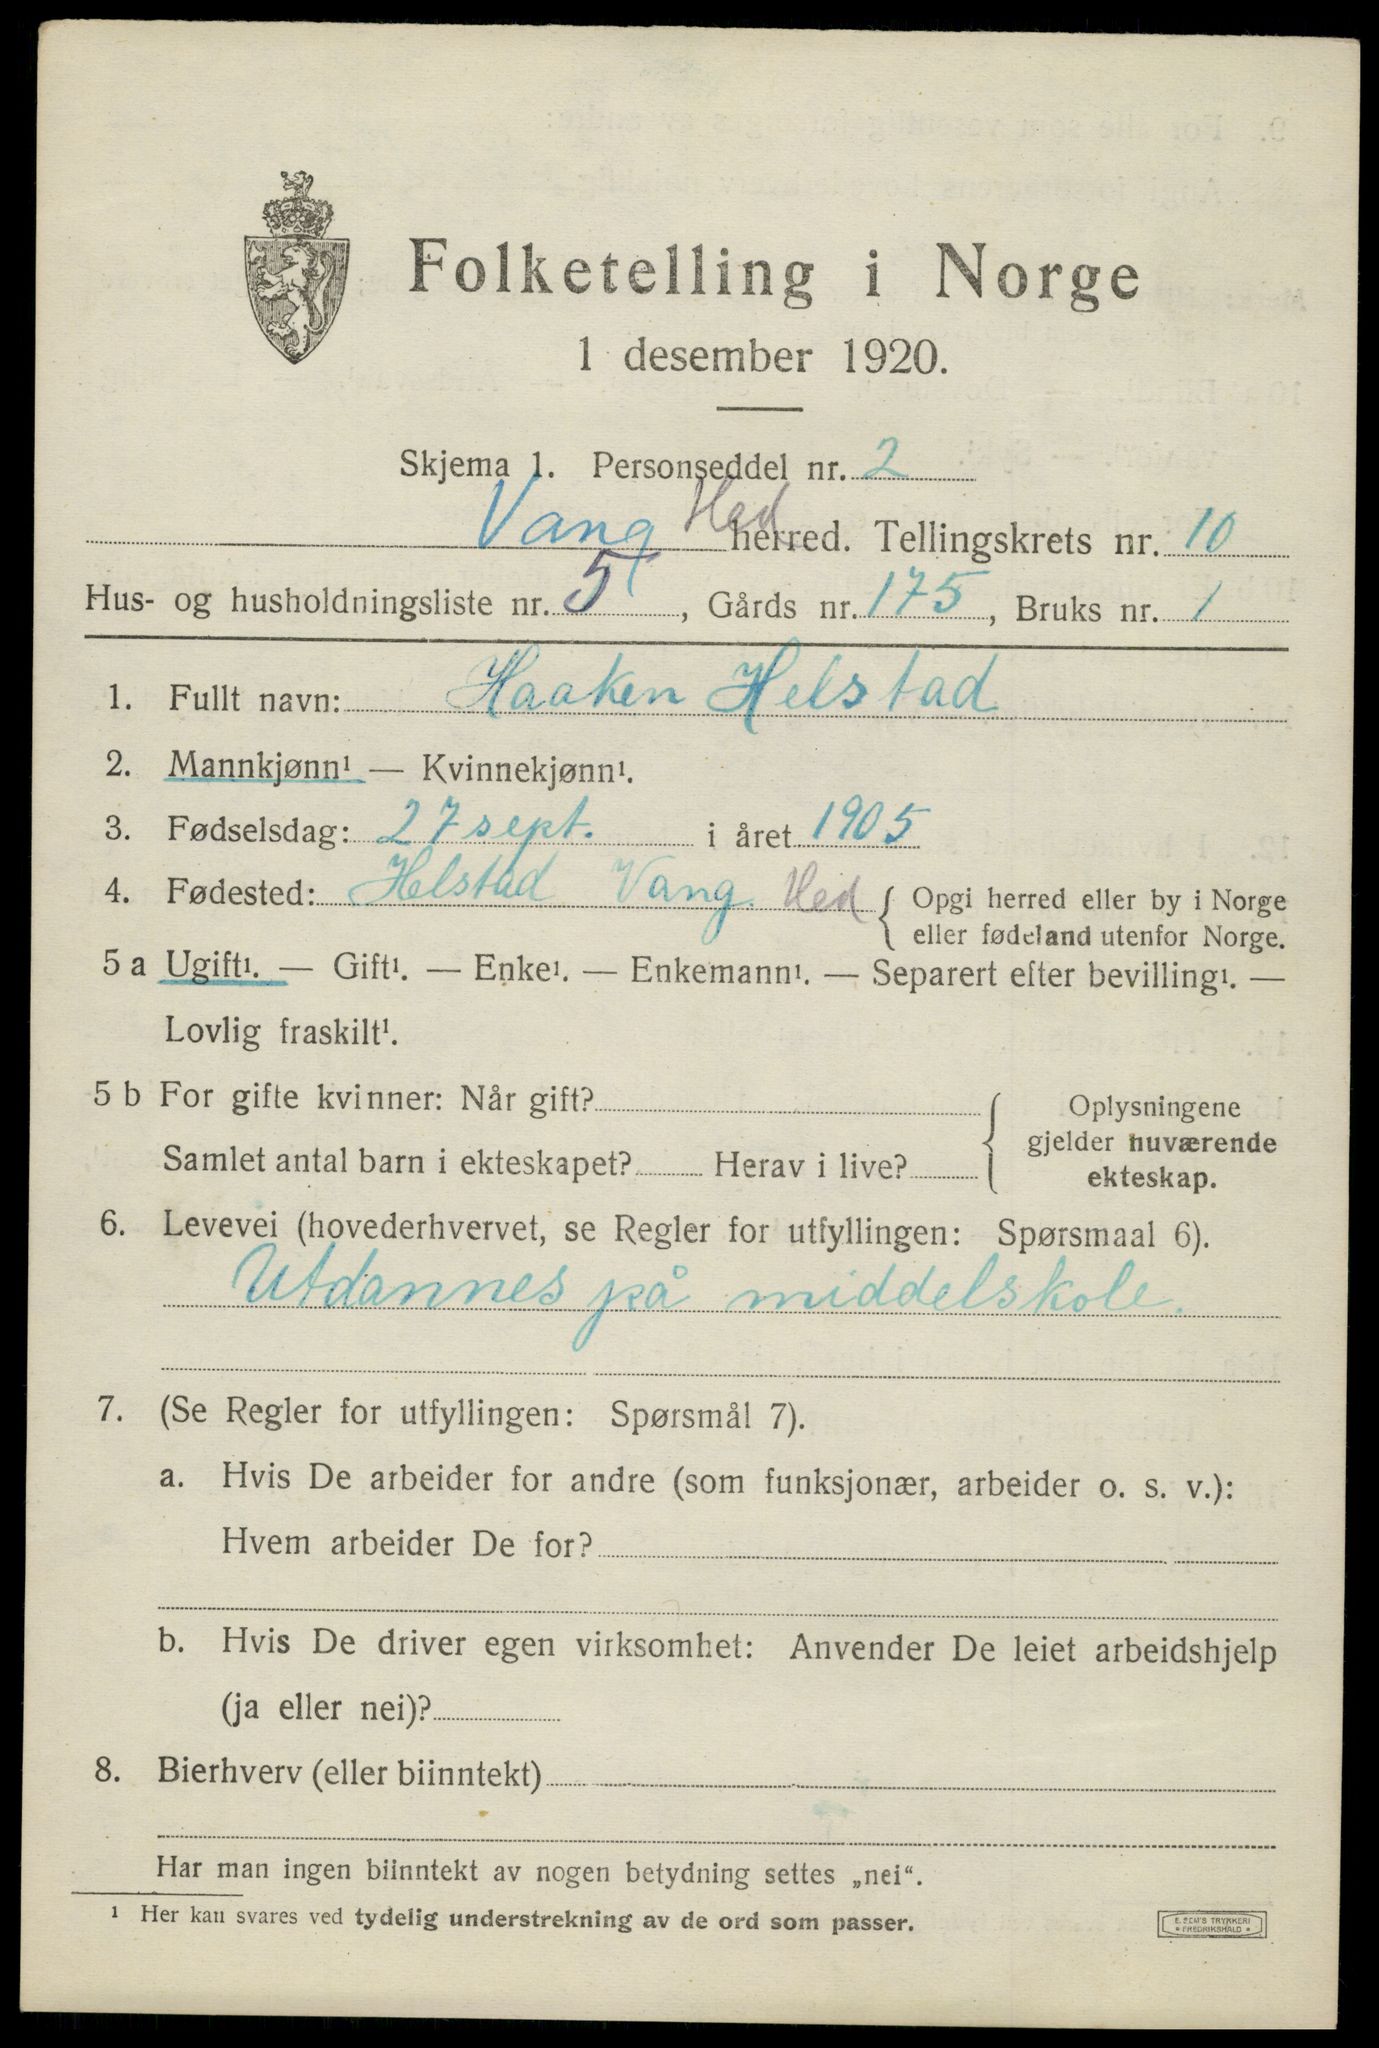 Folketelling i Norge
1 desember 1920.
Skjema 1. Personseddel nr. 2
Vang Hed. herred. Tellingskrets nr. 10
Hus- og husholdningsliste nr. 5, Gårds nr. 175, Bruks nr. 1
1. Fullt navn: Haaken Helstad
2. Mannkjønn¹ — Kvinnekjønn¹.
3. Fødselsdag: 27 sept. i året 1905
4. Fødested: Helstad Vang. Hed { Opgi herred eller by i Norge
eller fødeland utenfor Norge.
5 a Ugift¹. — Gift¹. — Enke¹. — Enkemann¹. — Separert efter bevilling¹. —
Lovlig fraskilt¹.
5 b For gifte kvinner: Når gift?
Samlet antal barn i ekteskapet? Herav i live?
{ Oplysningene
gjelder nuværende
ekteskap.
6. Levevei (hovederhvervet, se Regler for utfyllingen: Spørsmaal 6).
Utdannes på middelskole.
7. (Se Regler for utfyllingen: Spørsmål 7).
a. Hvis De arbeider for andre (som funksjonær, arbeider o. s. v.):
Hvem arbeider De for?
b. Hvis De driver egen virksomhet: Anvender De leiet arbeidshjelp
(ja eller nei)?
8. Bierhverv (eller biinntekt)
Har man ingen biinntekt av nogen betydning settes „nei“.
¹ Her kan svares ved tydelig understrekning av de ord som passer.
E. SEM'S TRYKKERI
• FREDRIKSHALD •